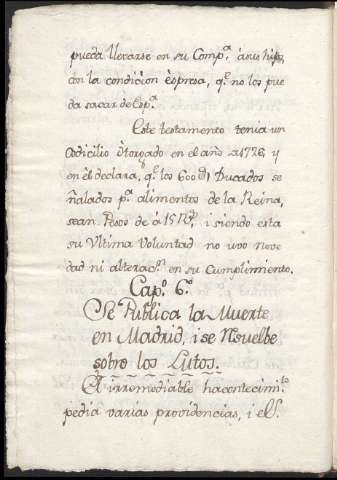 pueda llevarse en su Comp.ª á sus hijos,
con la condicion espresa, q.e no los pue
da sacar de Esp.ª
Este testamento tenia un
Codicilio Otorgado en el año de 1726, y
en él declara, q.e los 600 d) Ducados se
ñalados p.ª alimentos de la Reina,
sean Pesos de á 15 R.s, i siendo esta
su Ultima Voluntad no uvo nove
dad ni alterac.n en su Cumplimiento.
Cap.o 6.o
Se Publica la Muerte
en Madrid, i se Rsuelbe
sobre los Lutos.
El irremediable hacontecim.to
pedia varias providencias, i el S.